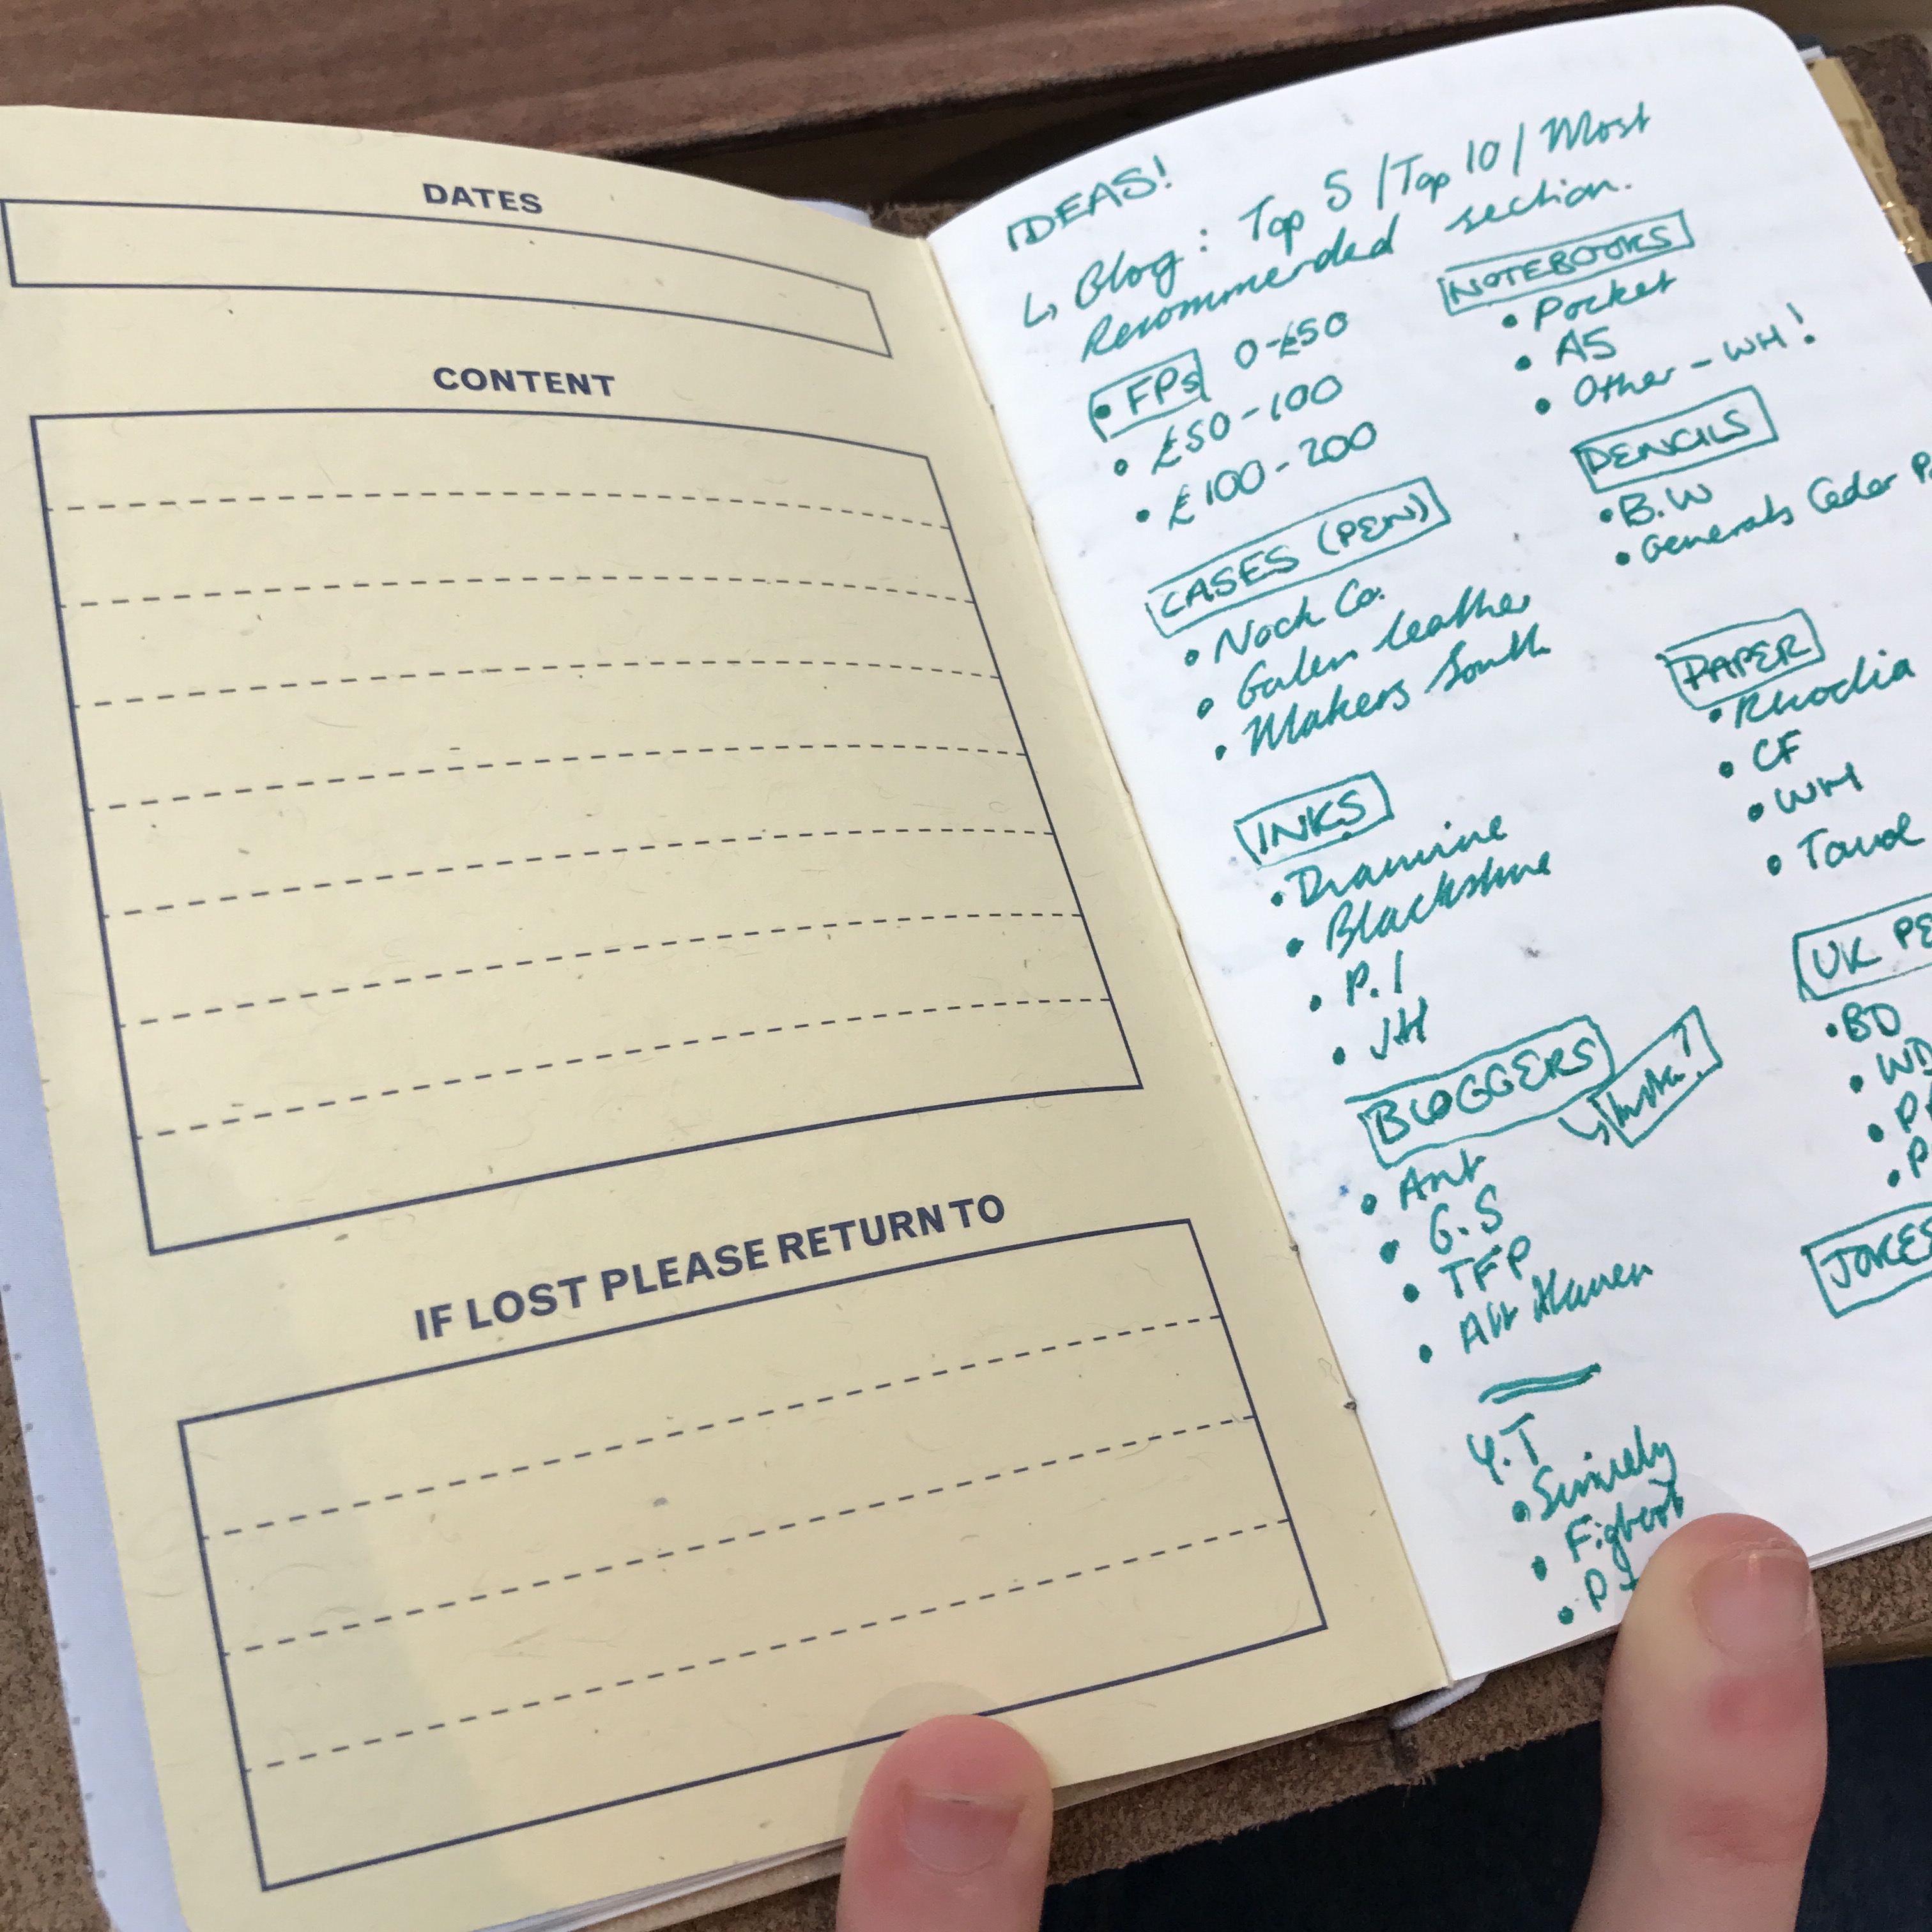 DATES
CONTENT
IF LOST PLEASE RETURN TO
IDEAS!
↳ Blog: Top 5 / Top 10 / Most
Recommended section.
• FPs 0-£50
• £50-100
• £100-200
CASES (PEN)
• Nock Co.
• Galen Leather
• Makers South
INKS
• Diamine
• Blackstone
• P.I
• JH
BLOGGERS
↳ Insta?
• Ant
• G.S
• TFP
• Alt Haven
Y.T
•
• Figboot
• P
NOTEBOOKS
• Pocket
• A5
• Other - WH!
PENCILS
• B.W
• Generals Cedar P
PAPER
• Rhodia
• CF
• WH
•
UK PE
• BD
• WD
• P
• P
JOKES